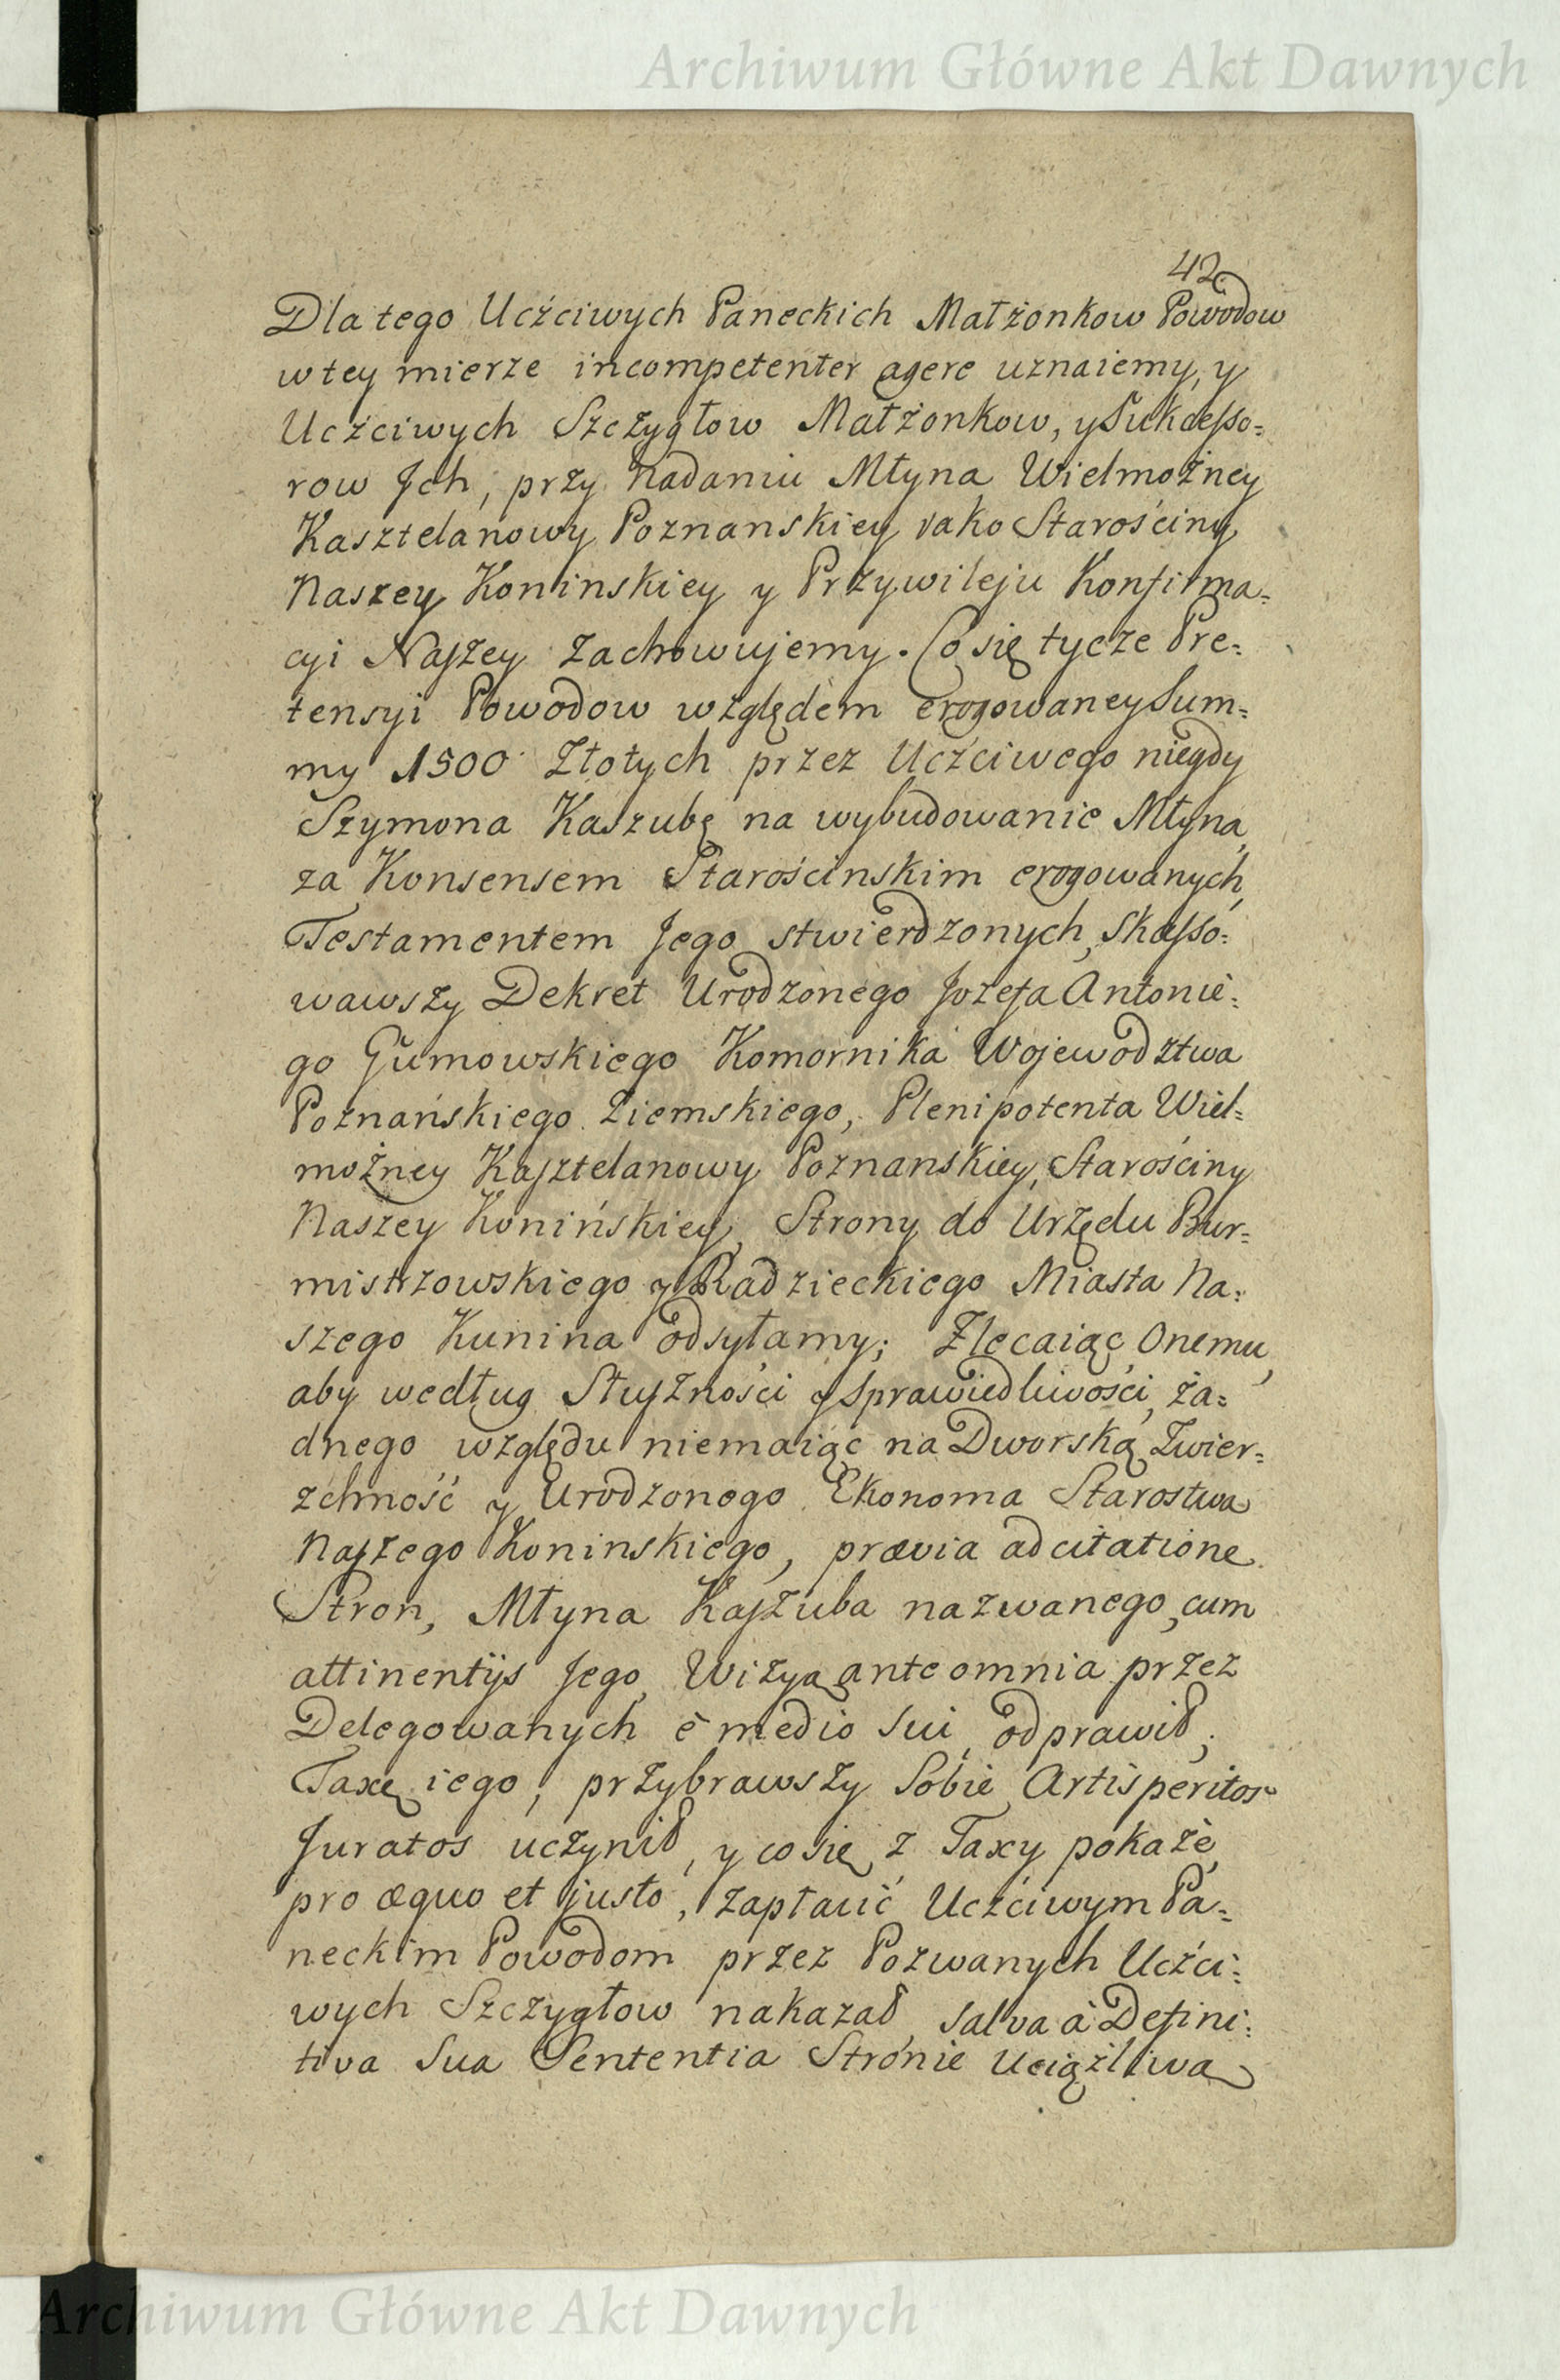 Archiwum Główne Akt Dawnych
42.
Dla tego Uczciwych Paneckich Małżonkow Powodow
w tey mierze incompetenter agere uznaiemy, y
Uczciwych Szczygłow Małżonkow, y Sukcesso=
row Jch, przy nadaniu Młyna Wielmożney
Kasztelanowy Poznanskiey iako Starościny
Naszey Koninskiey y Przywileju Konfirma=
cyi Naszey zachowujemy. Co się tycze Pre=
tensyi Powodow względem erogowaney Sum=
my 1500 Złotych przez Uczciwego niegdy
Szymona Kaszubę na wybudowanie Młyna,
za Konsensem Starościnskim erogowanych,
Testamentem Jego stwierdzonych, skasso=
wawszy Dekret Urodzonego Jozefa Antonie=
go Gumowskiego Komornika Wojewodztwa
Poznańskiego Ziemskiego, Plenipotenta Wiel=
możney Kasztelanowy Poznanskiey, Starościny
Naszey Konińskiey, Strony do Urzędu Bur=
mistrzowskiego y Radzieckiego Miasta Na=
szego Kunina odsyłamy; Zlecaiąc Onemu,
aby według Słuszności y sprawiedliwości, ża=
dnego względu niemaiąc na Dworską Zwier=
zchność y Urodzonego Ekonoma Starostwa
Naszego Koninskiego, prævia adcitatione
Stron, Młyna Kaszuba nazwanego, cum
attinentijs Jego, Wizyą ante omnia przez
Delegowanych è medio sui, odprawił,
Taxę iego, przybrawszy sobie Artis peritos
Juratos uczynił, y co się z Taxy pokaże,
pro æquo et justo, zapłacić Uczciwym Pa=
neckim Powodom przez Pozwanych Uczci=
wych Szczygłow nakazał, salva à Defini=
tiva sua Sententia Stronie uciążliwa
Archiwum Główne Akt Dawnych